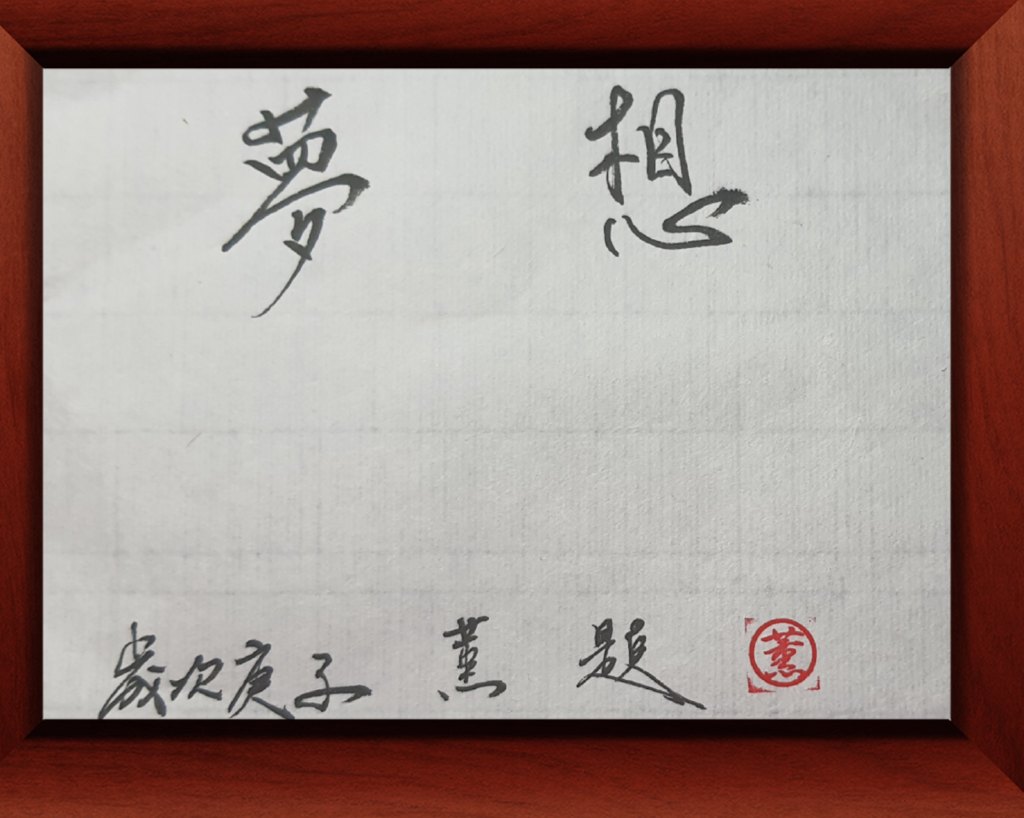 夢想
歲次庚子 薰 題 薰